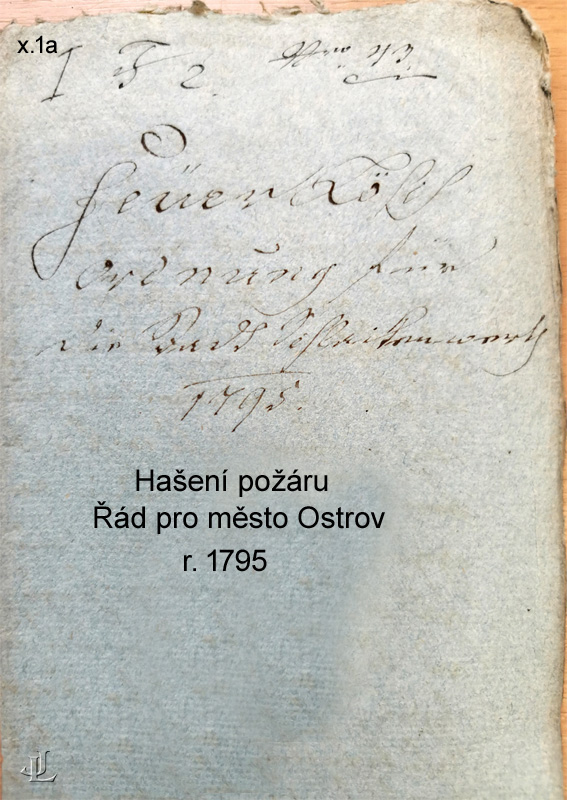 x.1a
I F 2. Nro. 43.
Feüer Lösch
Ordnung für
die Stadt Schlackenwerth
1795.
Hašení požáru
Řád pro město Ostrov
r. 1795
JL